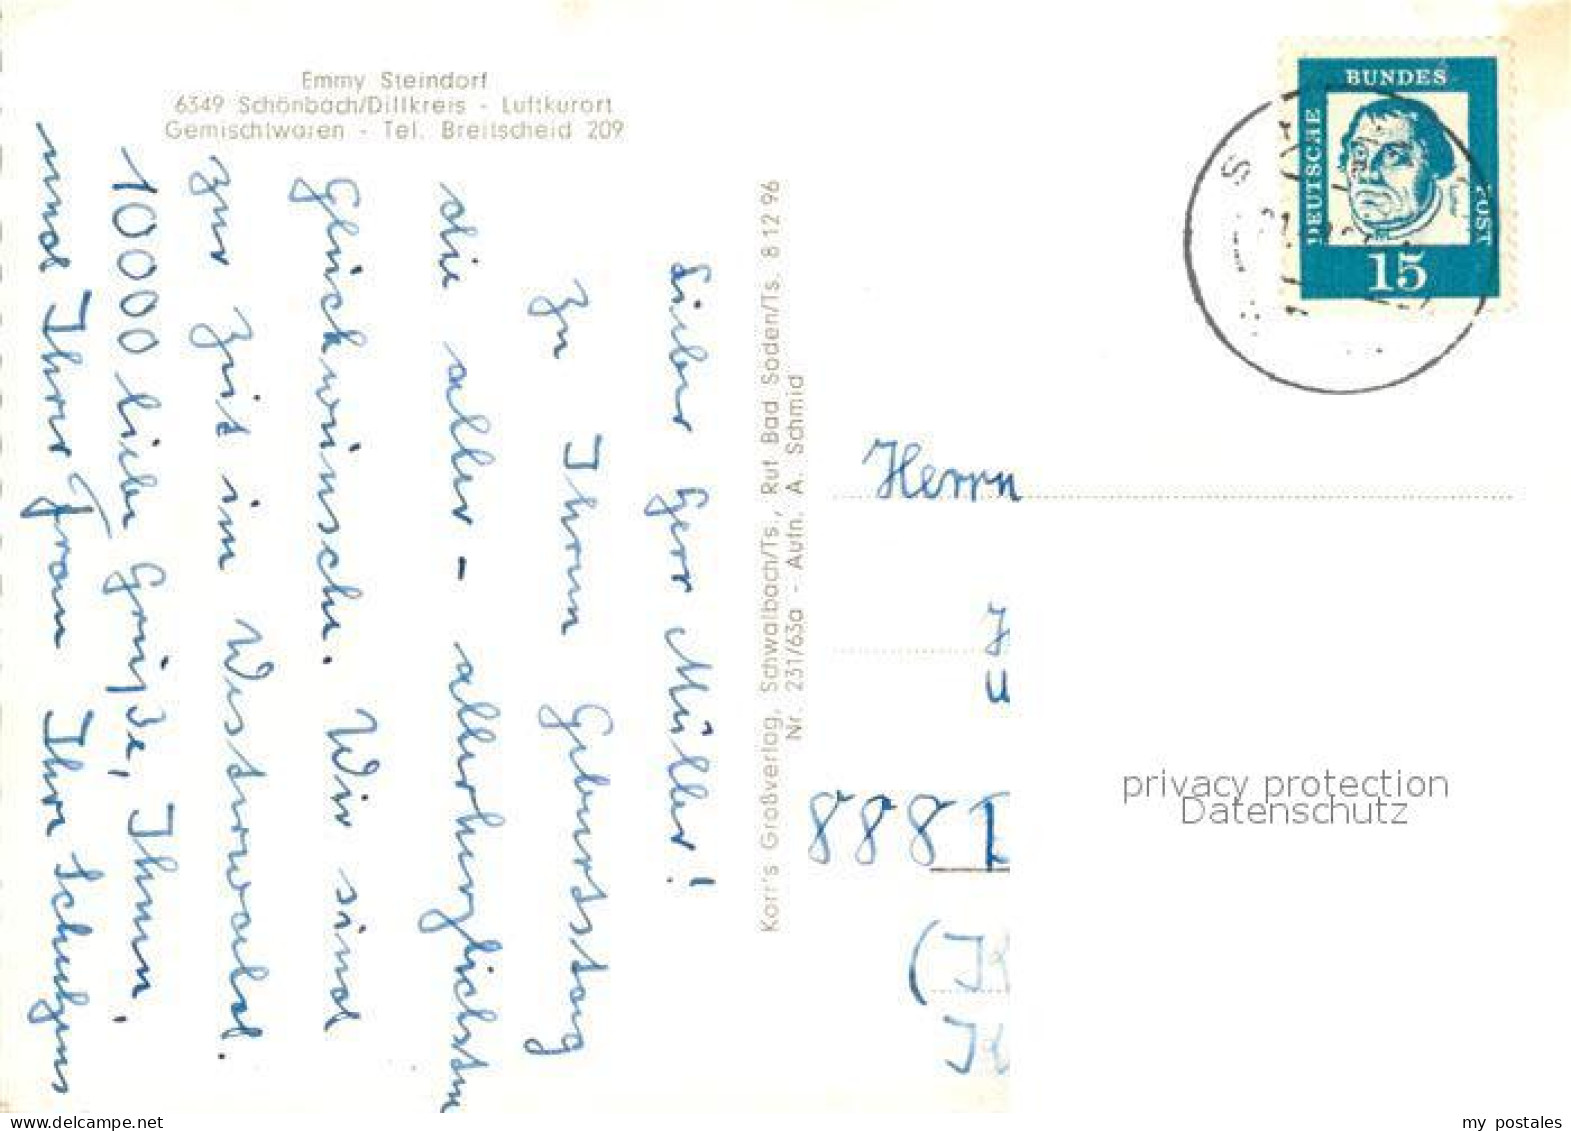 Emmy Steindorf
6349 Schönbach/Dillkreis - Luftkurort
Gemischtwaren - Tel. Breitscheid 209
Lieber Herr Müller!
Zu Ihrem Geburtstag
die aller- allerherzlichsten
Glückwünsche. Wir sind
zur Zeit im Westerwald.
10000 liebe Grüße, Ihnen
und Ihrer Frau Ihre Schulzens
Korr's Großverlag, Schwalbach/Ts., Ruf Bad Soden/Ts. 8 12 96
Nr. 231/63a - Aufn. A. Schmid
BUNDES
DEUTSCHE
POST
15
Herrn
u
8881
privacy protection
Datenschutz
www.delcampe.net
my_postales